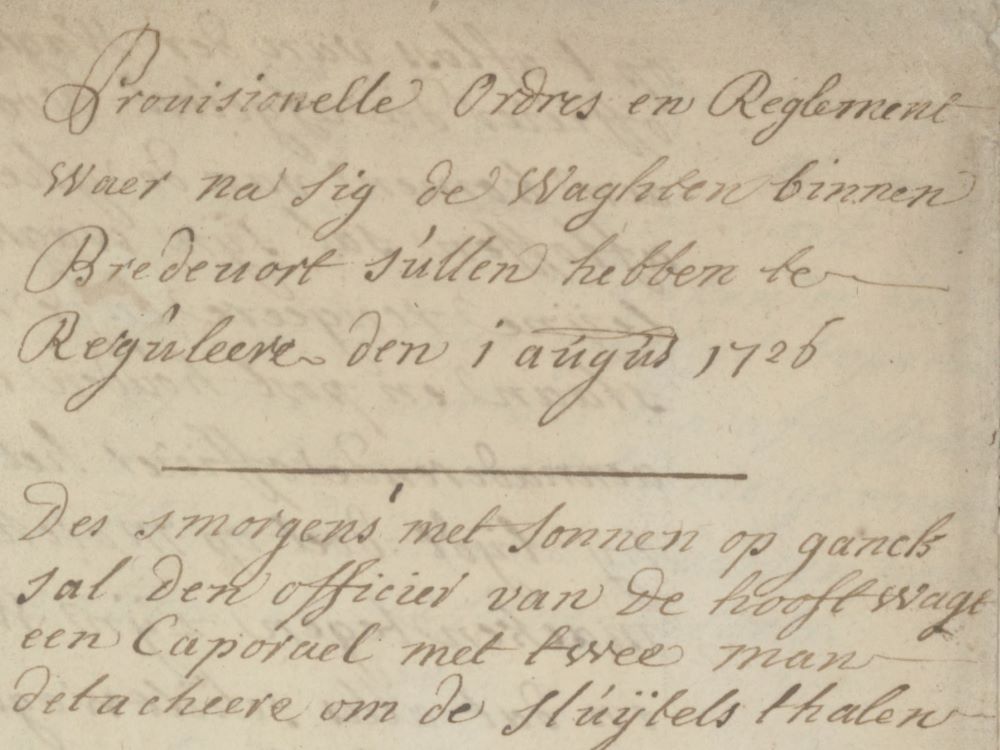 Provisionelle Ordres en Reglement
waer na sig de Waghten binnen
Bredevort sullen hebben te
Reguleere den 1 augus 1726
Des smorgens met sonnen op ganck
sal den officier van de hooft wagt
een Caporael met twee man
detacheere om de sluÿtels thalen